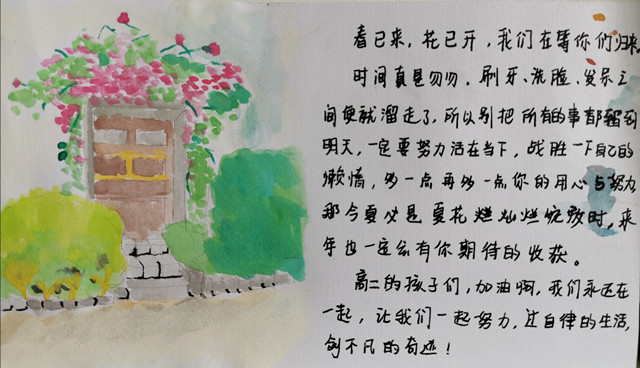 春已来,花已开,我们在等你们归来。
时间真是匆匆。刷牙、洗脸、发呆之
间便就溜走了,所以别把所有的事都留到
明天,一定要努力活在当下,战胜一下自己的
懒惰,多一点再多一点你的用心与努力
那今夏必是夏花烂灿烂绽放时,来
年也一定会有你期待的收获。
高二的孩子们,加油啊,我们永远在
一起,让我们一起努力,过自律的生活,
创不凡的奇迹!